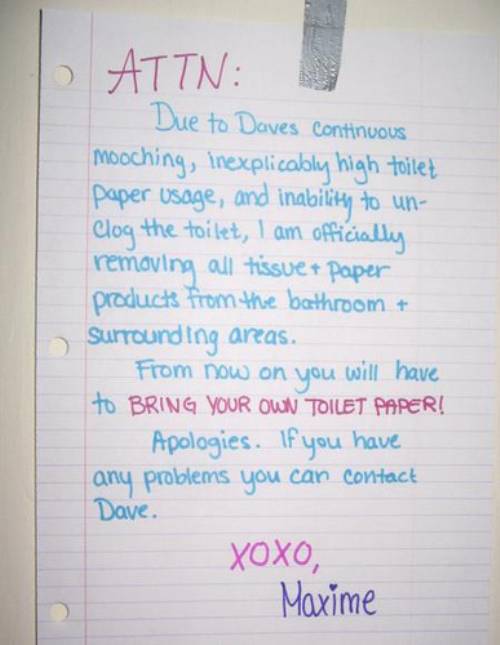 ATTN:
Due to Daves continuous
mooching, inexplicably high toilet
paper usage, and inability to un-
clog the toilet, I am officially
removing all tissue + paper
products from the bathroom +
surrounding areas.
From now on you will have
to BRING YOUR OWN TOILET PAPER!
Apologies. If you have
any problems you can contact
Dave.
XOXO,
Maxime